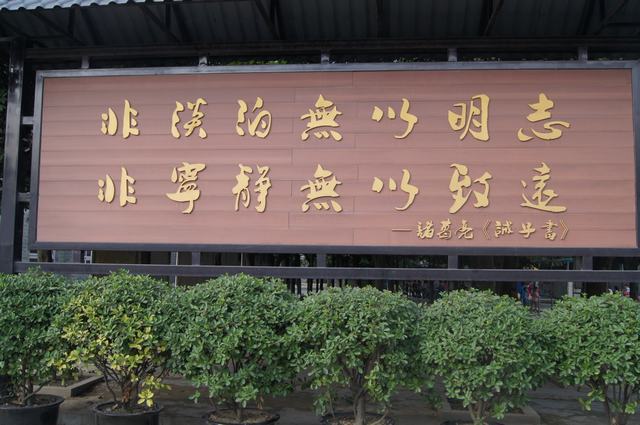 非淡泊無以明志
非寧靜無以致遠
—諸葛亮《誡子書》